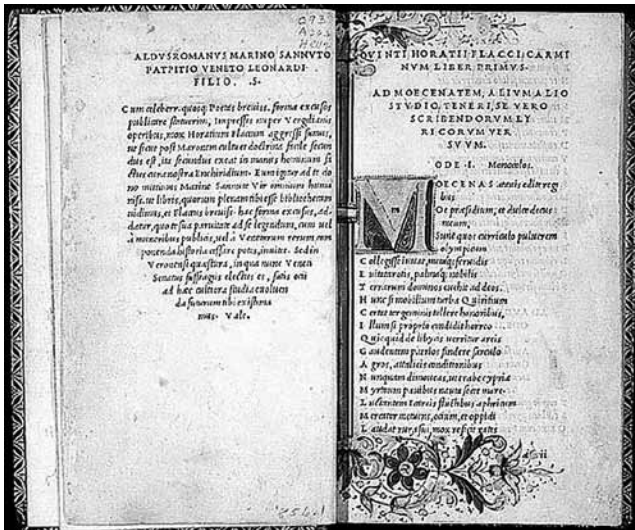 ALDVS ROMANVS MARINO SANNVTO
PATRITIO VENETO LEONARDI
FILIO. .S.
Cum celeberr. quosq; Poetas breuiss. forma excusos
publicare statuerim, Impressis nuper Vergilianis
operibus, mox Horatium Flaccum aggressi sumus,
ut sicut post Maronem cultu et doctrina facile secun
dus est, ita secundus exeat in manus hominum
cura nostra Enchiridium. Eum igitur ad te do
no mittimus Marine Sannute Vir omnium huma
niss. ut libros, quorum plenam tibi esse bibliothecam
uidimus, et Flaccus breuissi hac forma excusus, ad-
datur, quo te sua paruitate ad se legendum, cum uel
a muneribus publicis, uel a Venetarum rerum com
ponenda historia cessare potes, inuitet. Sed in
Veronensi quæstura, in qua nunc Veneti
Senatus suffragiis electus es, satis oti
ad hæc cultiora studia euoluen
da futurum tibi existima
mus. Vale.
QVINTI HORATII FLACCI CARMI
NVM LIBER PRIMVS.
AD MOECENATEM, ALIVM ALIO
STVDIO TENERI, SE VERO
SCRIBENDORVM LY
RICORVM VER
SVVM.
ODE .I. Monocolos.
M
m
OECENAS atauis edite regi
bus
O et præsidium, et dulce decus
meum,
Sunt quos curriculo puluerem
olympicum
C ollegisse iuuat, metaq; feruidis
E uitata rotis, palmaq; nobilis
T errarum dominos euehit ad deos.
H unc si mobilium turba Quiritium
C ertat tergeminis tollere honoribus,
I llum si proprio condidit horreo
Q uicquid de libycis uerritur areis
G audentem patrios findere sarculo
A gros, attalicis conditionibus
N unquam dimoueas, ut trabe cypria
M yrtoum pauidus nauta secet mare.
L uctantem Icariis fluctibus aphricum
M ercator metuens, ocium, et oppidi
L audat rura sui, mox reficit rates